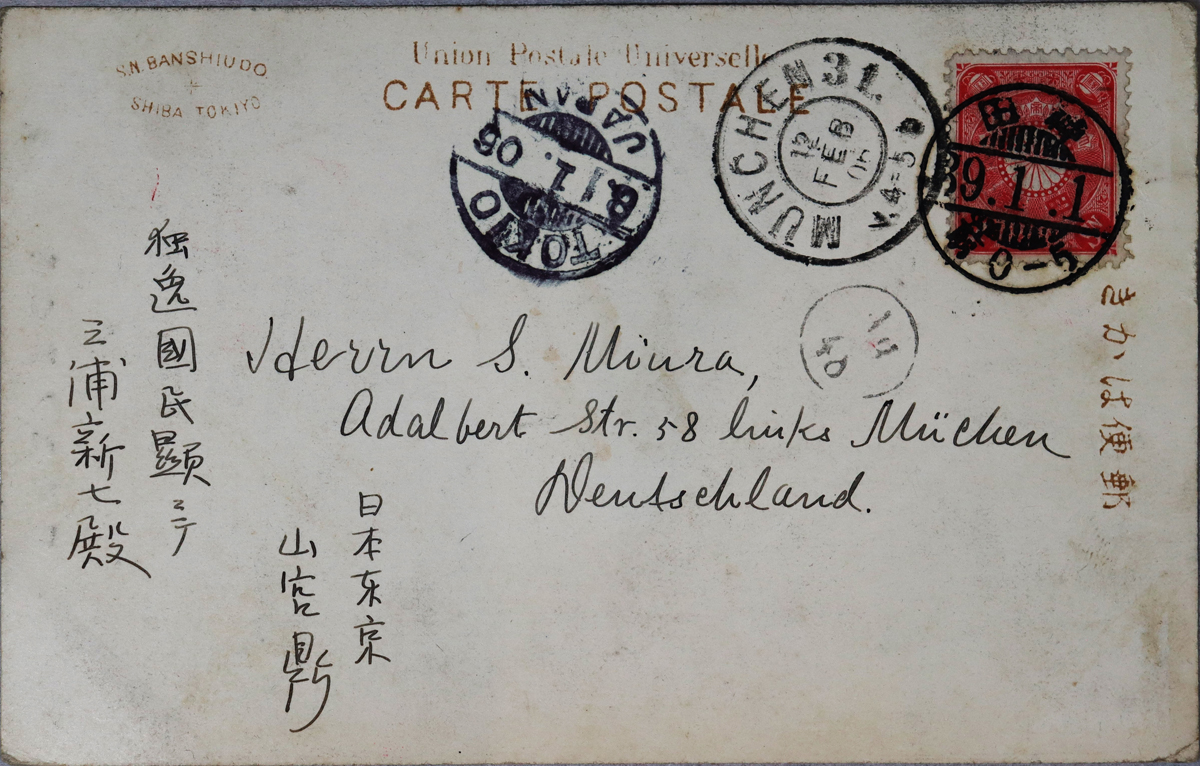 S.N. BANSHIUDO
SHIBA TOKIYO
Union Postale Universelle
CARTE POSTALE
TOKIO
JAPAN
MÜNCHEN 31.
12
FEB
V.4-5
39.1.1
0-5
きかは便郵
Herrn S. Miura,
Adalbert Str. 58 links Müchen
Deutschland.
日本东京
山宮鼎
独逸國民顯ニテ
三浦新七殿